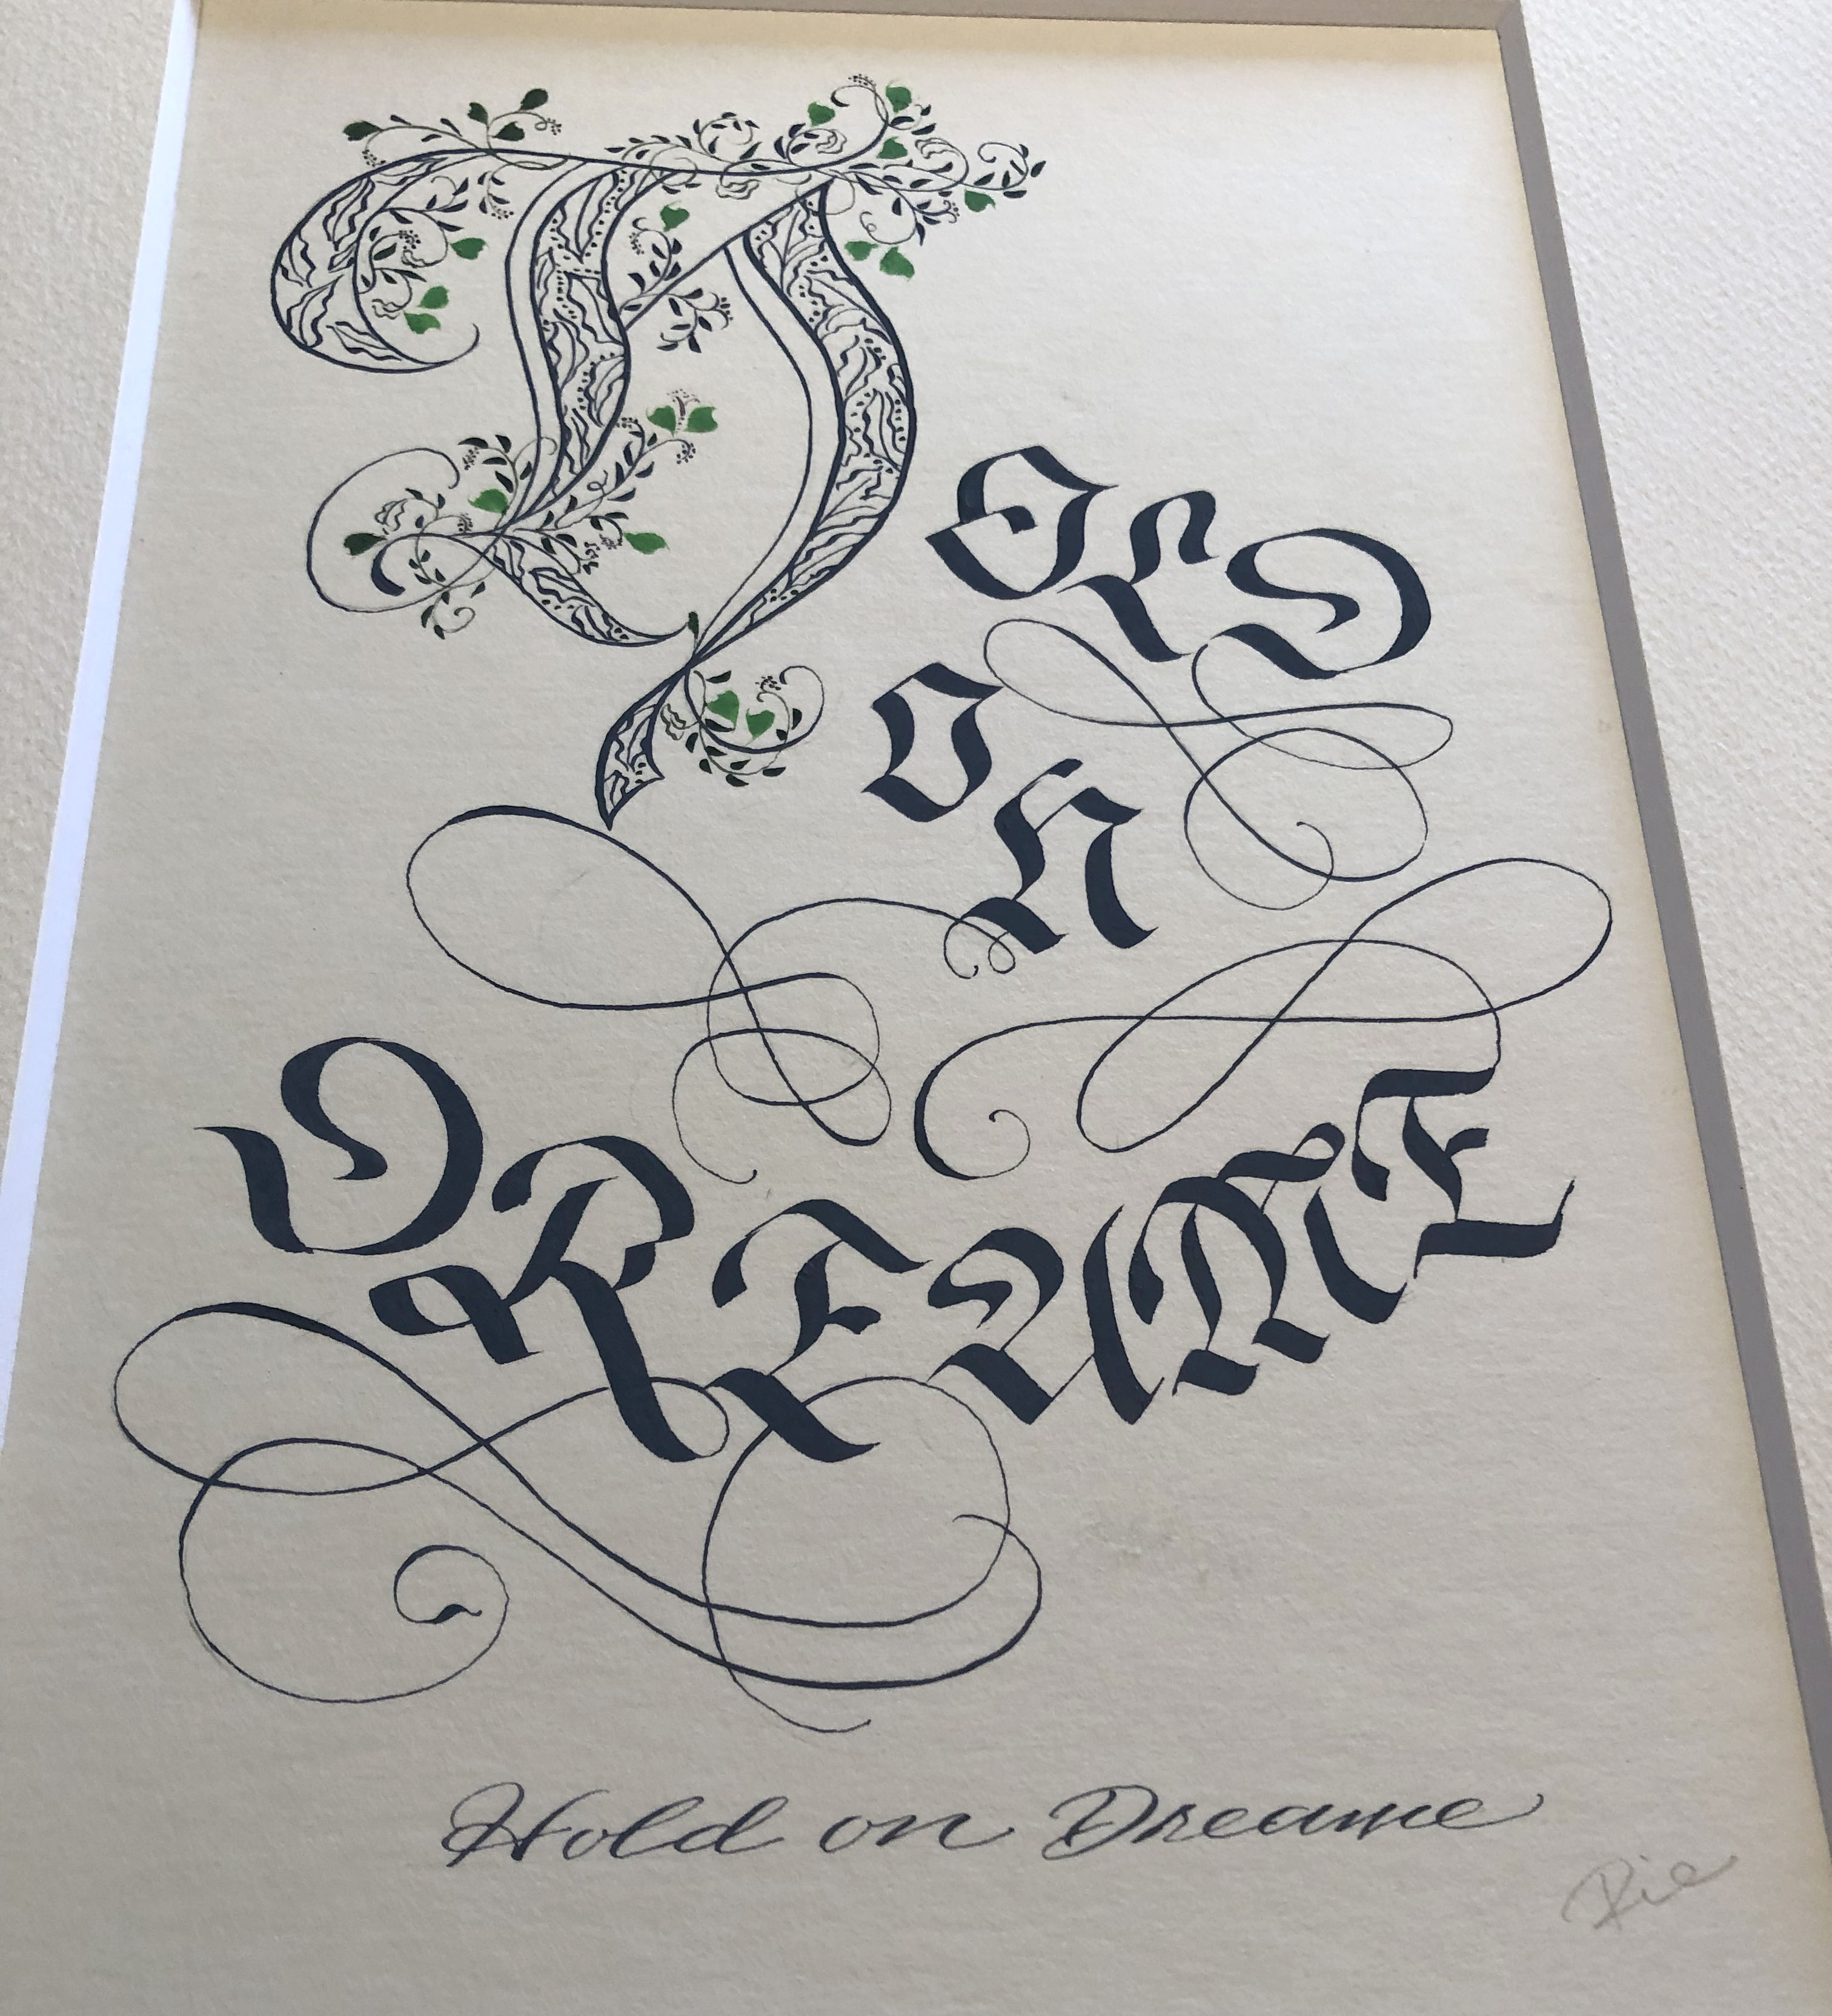 HOLD
ON
DREAME
Hold on Dreame
Rie